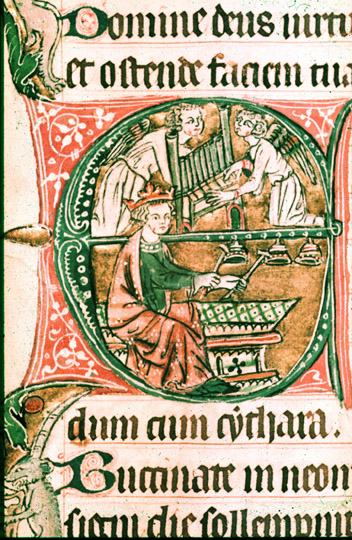 Domine deus uirtu
et ostende faciem tua
E
dum cum cythara.
Buccinate in neom
signi die sollempni